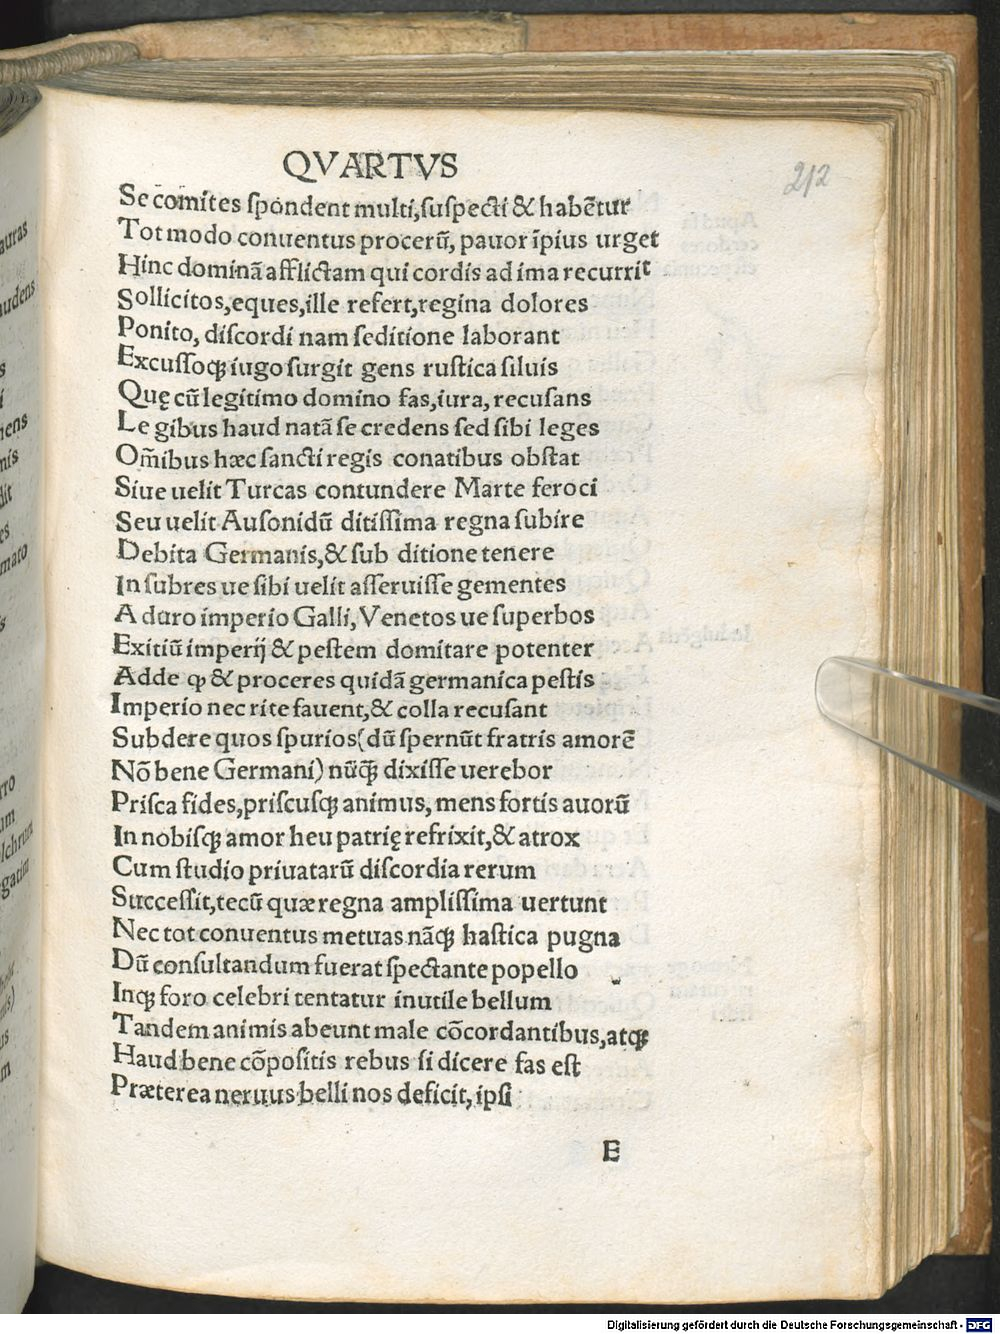 QVARTVS
212
Se comites ſpondent multi,ſuſpecti & habētur
Tot modo conuentus procerū, pauor īpius urget
Hinc dominā afflictam qui cordis ad ima recurrit
Sollicitos,eques,ille refert,regina dolores
Ponito, diſcordi nam ſeditione laborant
Excuſſoqꝫ iugo ſurgit gens ruſtica ſiluis
Quę cū legitimo domino fas,iura, recuſans
Le gibus haud natā ſe credens ſed ſibi leges
Om̄ibus hæc ſancti regis conatibus obſtat
Siue uelit Turcas contundere Marte feroci
Seu uelit Auſonidū ditiſſima regna ſubire
Debita Germanis,& ſub ditione tenere
In ſubres ue ſibi uelit aſſeruiſſe gementes
A duro imperio Galli, Venetos ue ſuperbos
Exitiū imperij & peſtem domitare potenter
Adde ꝙ & proceres quidā germanica peſtis
Imperio nec rite fauent,& colla recuſant
Subdere quos ſpurios(dū ſpernūt fratris amorē
Nō bene Germani) nūꝙ̄ dixiſſe uerebor
Priſca fides,priſcuſqꝫ animus, mens fortis auorū
In nobiſqꝫ amor heu patrię refrixit,& atrox
Cum ſtudio priuatarū diſcordia rerum
Succeſſit,tecū quæ regna ampliſſima uertunt
Nec tot conuentus metuas nāqꝫ haſtica pugna
Dū conſultandum fuerat ſpectante popello
Inqꝫ foro celebri tentatur inutile bellum
Tandem animis abeunt male cōcordantibus,atqꝫ
Haud bene cōpoſitis rebus ſi dicere fas eſt
Præterea neruus belli nos deficit, ipſi
E
auras
audens
s
i
mens
nis
dit
es
mato
s
rro
um
lchrum
gatim
us
m
Digitalisierung gefördert durch die Deutsche Forschungsgemeinschaft - DFG